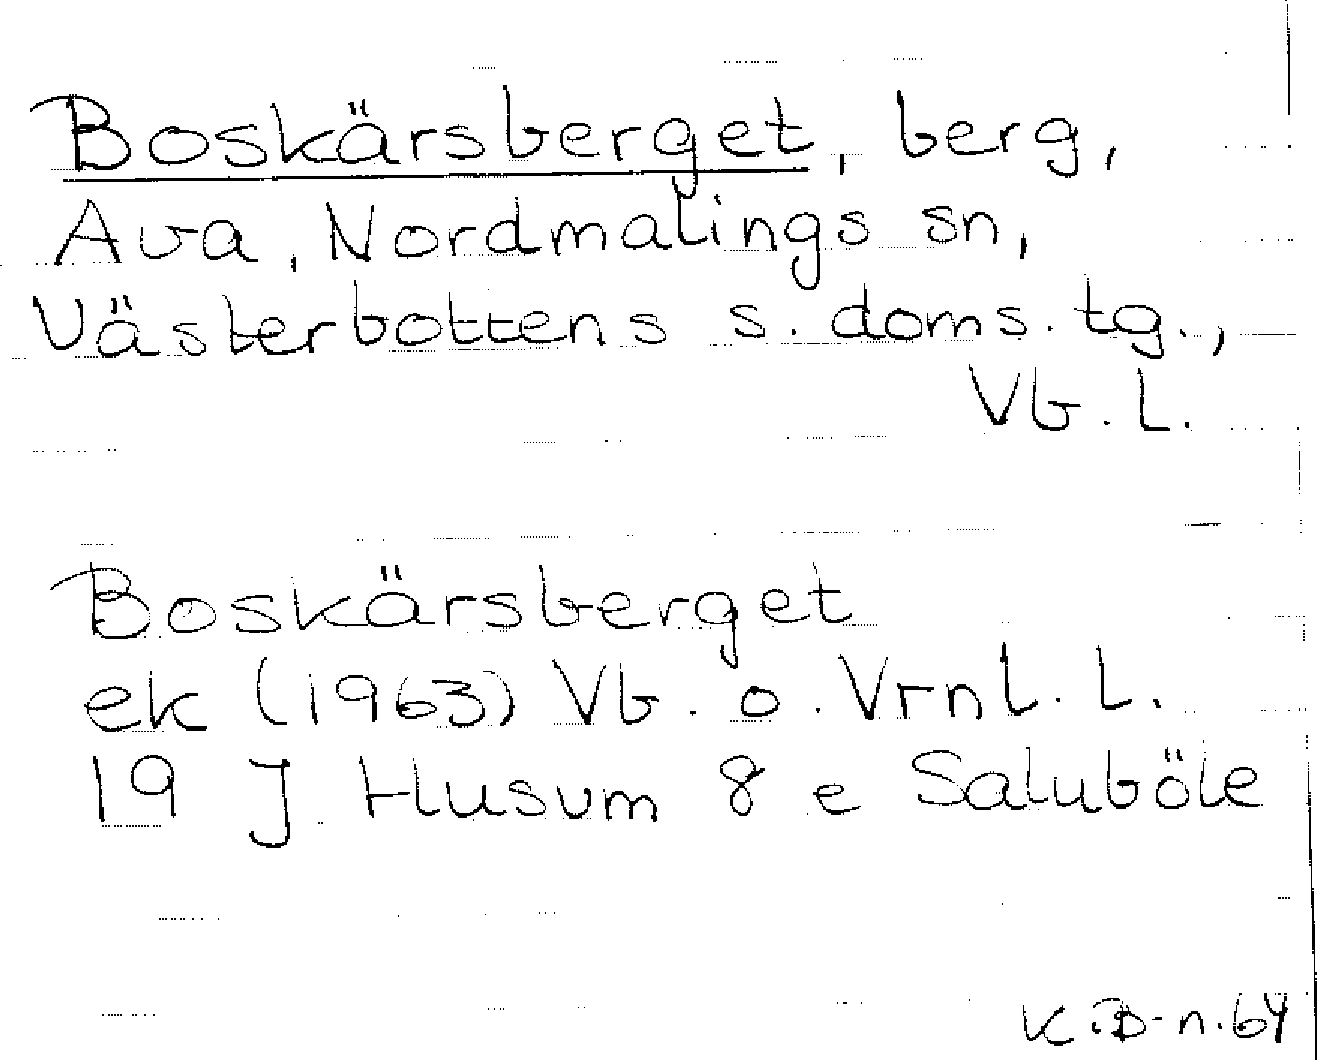 Boskärsberget, berg,
Ava, Nordmalings sn,
Västerbottens s. doms. tg.,
Vb. L.
Boskärsberget
ek (1963) Vb. o. Vrml. L.
19 J Husum 8 e Saluböle
K.B-n.64